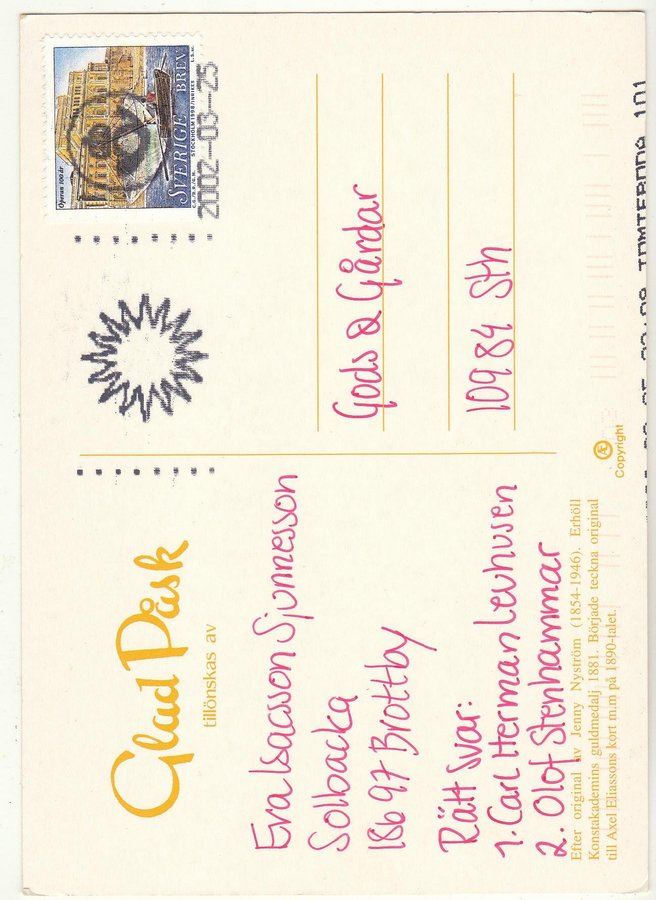 Glad Påsk
tillönskas av
Eva Isacsson Sjunnesson
Solbacka
186 97 Brottby
Rätt svar:
1. Carl Herman Levhusen
2. Olof Stenhammar
Efter original av Jenny Nyström (1854-1946). Erhöll
Konstakademins guldmedalj 1881. Började teckna original
till Axel Eliassons kort m.m på 1890-talet.
Operan 100 år
SVERIGE BREV
STOCKHOLM 1998/INRIKES
2002-03-25
Gods & Gårdar
109 84 Sth
Æ
Copyright
TOMTEBODA 101